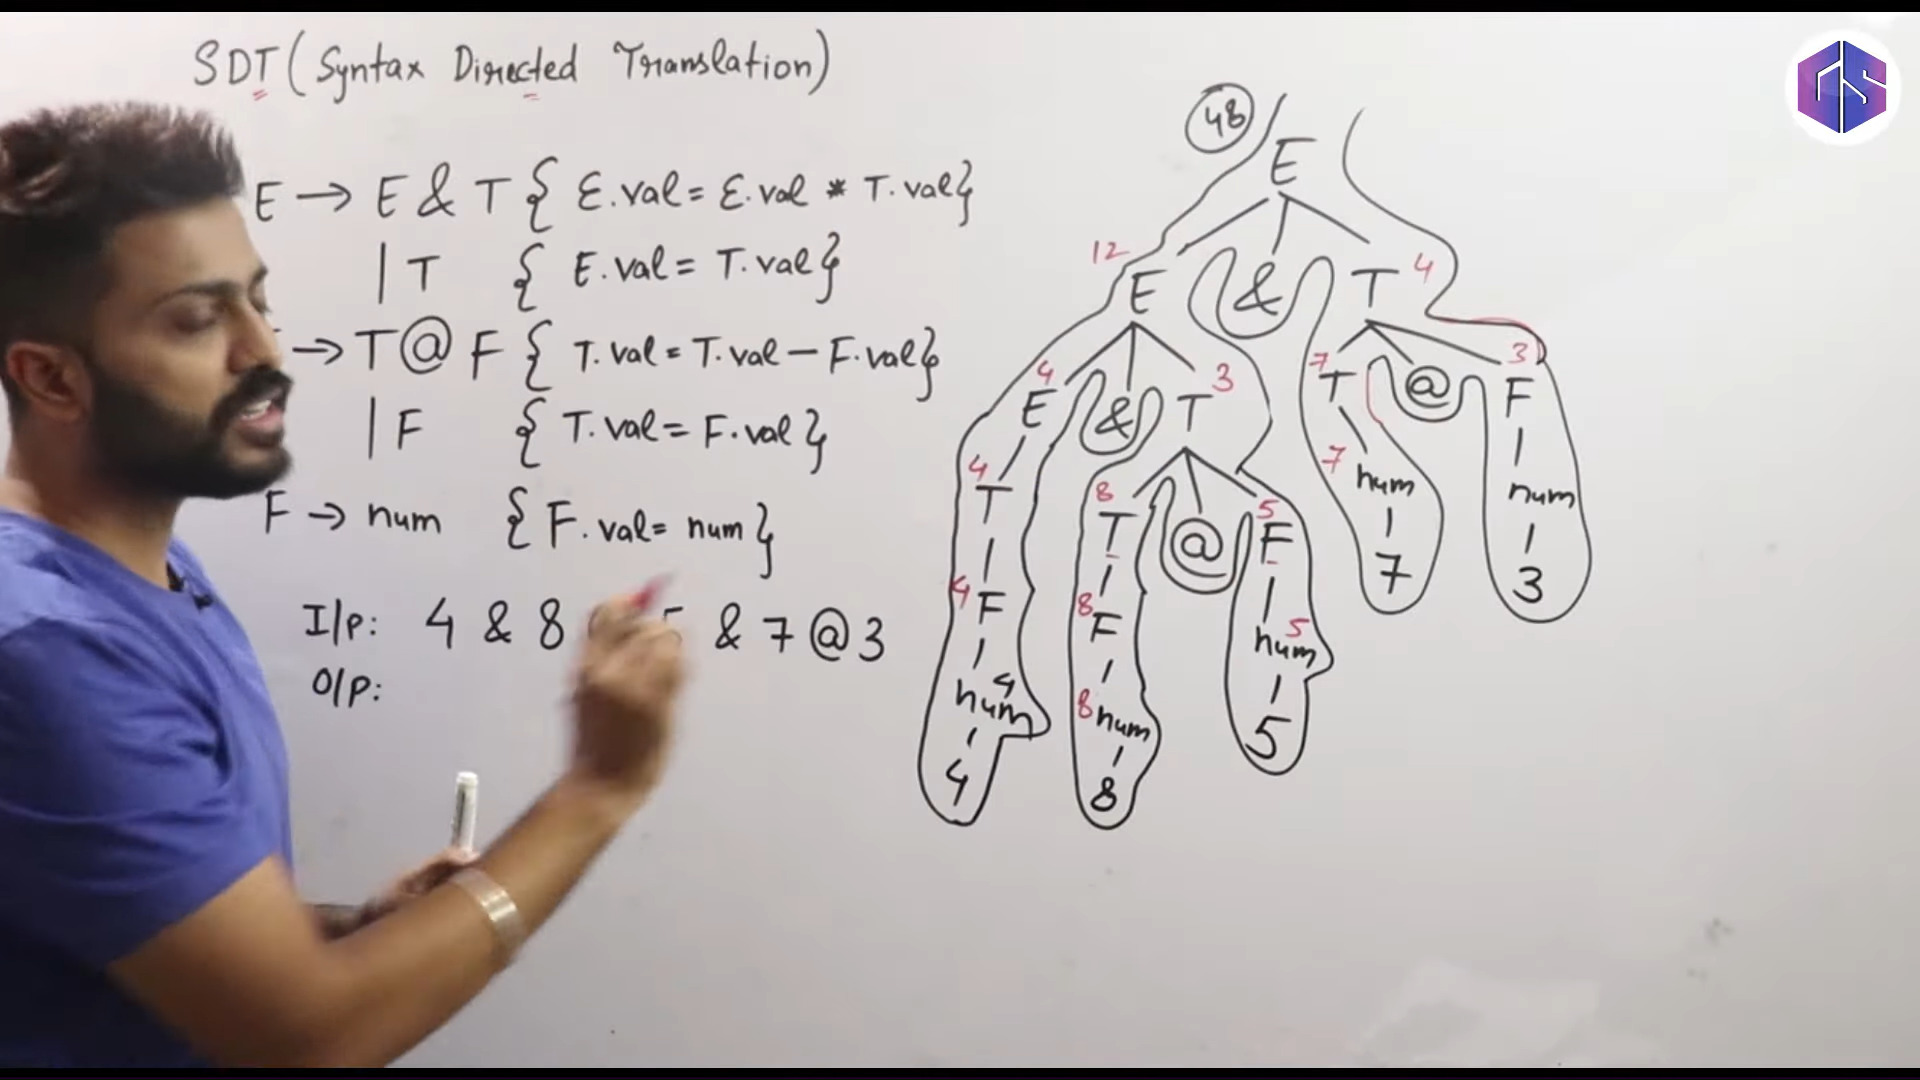 SDT (Syntax Directed Translation)
E → E & T { E.val = E.val * T.val}
| T { E.val = T.val}
→ T @ F { T.val = T.val - F.val}
| F { T.val = F.val}
F → num { F.val = num}
I/p: 4 & 8 & 7 @ 3
O/p:
48
E
12 E & T 4
4 E & T 3 7 T @ F 3
4 T 8 T @ F 5 7 num num
4 F 8 F num 5 7 3
num 4 8 num 5
4 8
GS